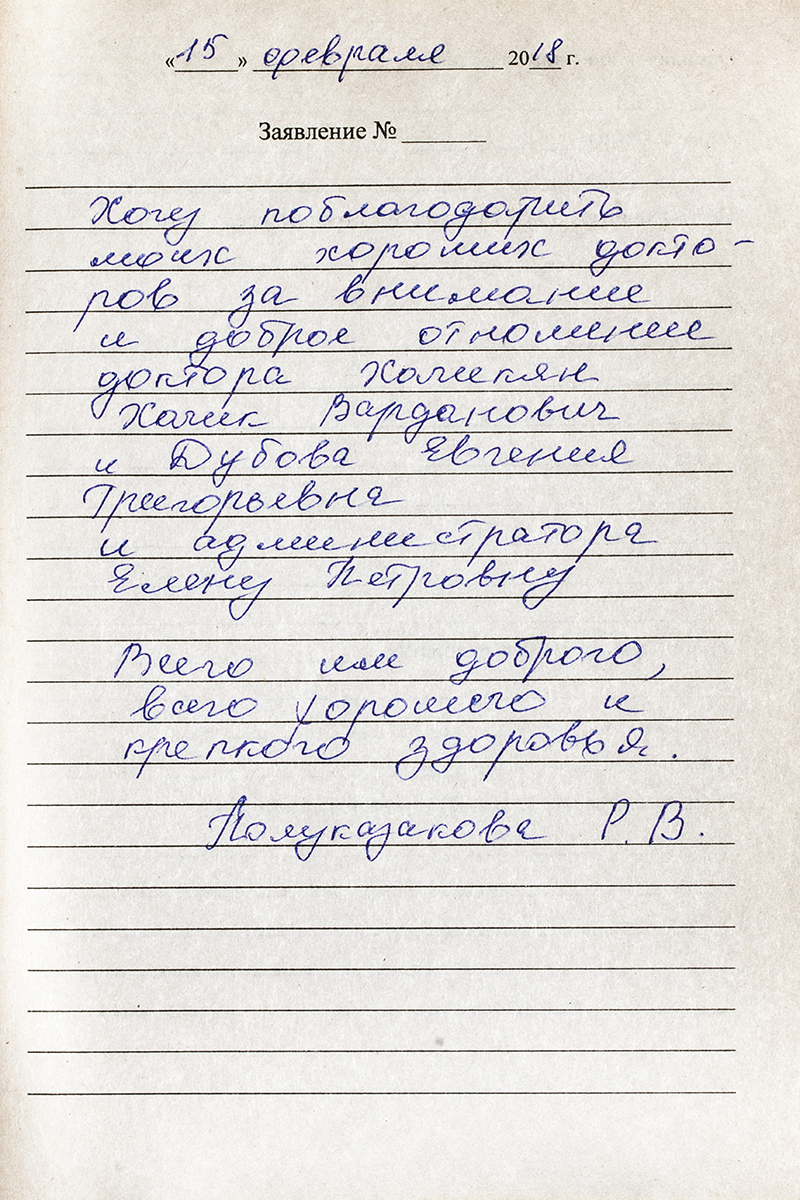 «15» февраля 2018 г.
Заявление № ______
Хочу поблагодарить
моих хороших докто-
ров за внимание
и доброе отношение
доктора Хачикян
Хачик Варданович
и Дубова Евгения
Григорьевна
и администратора
Елену Петровну
Всего им доброго,
всего хорошего и
крепкого здоровья.
Полуказакова Р. В.